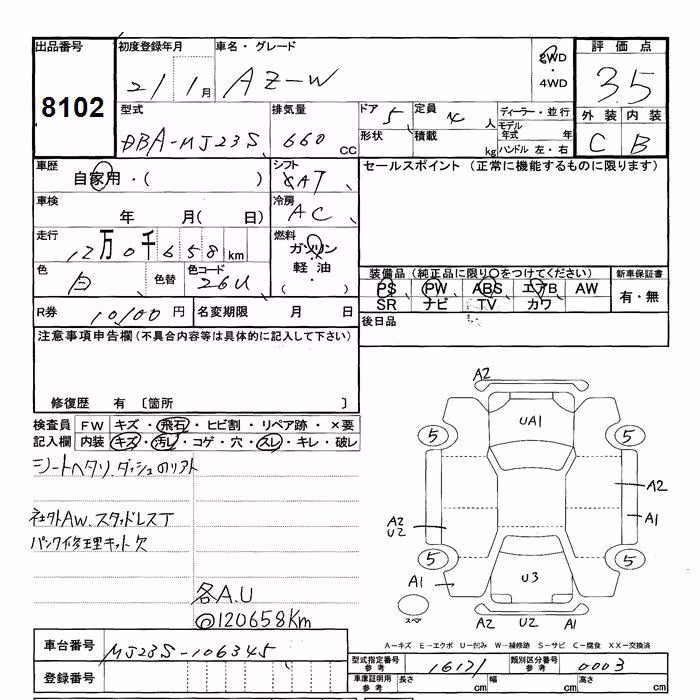 出品番号 初度登録年月 車名・グレード 評価点
8102 21 1月 AZ-W 2WD・4WD 3.5
型式 排気量 ドア 5 定員 4人 ディーラー・並行 外装 内装
DBA-MJ23S 660cc 形状 積載 kg モデル年式 年 ハンドル 左・右 C B
車歴 シフト セールスポイント (正常に機能するものに限ります)
自家用・( ) CAT
車検 冷房
年 月( 日) AC
走行 燃料
12万0千658km ガソリン
色 色替 色コード 軽油・ 装備品 (純正品に限り○をつけてください) 新車保証書
白 26U PS PW ABS エアB AW 有・無
SR ナビ TV カワ
R券 10100円 名変期限 月 日 後日品
注意事項申告欄 (不具合内容等は具体的に記入して下さい)
修復歴 有 〔箇所 〕
検査員 FW キズ・飛石・ヒビ割・リペア跡・×要
記入欄 内装 キズ・汚レ・コゲ・穴・スレ・キレ・破レ
シートヘタリ、ダッシュのリアト
社外AW、スタッドレスT
パンク修理キット欠
各A.U
◎120658Km
A2
UA1
5 5
A2
A2 U2
A1
5 5
A1 U3
スペア A2 U2 A1
A-キズ E-エクボ U-凹み W-補修跡 S-サビ C-腐食 XX-交換済
車台番号 MJ23S-106345
型式指定番号 参考 16171 類別区分番号 参考 0003
登録番号
車庫証明用 参考 長さ cm 幅 cm 高さ cm